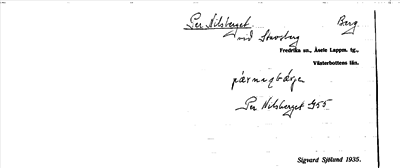 Per Nilsberget Berg
vid Stavsberg
Fredrika sn., Åsele Lappm. tg.,
Västerbottens län.
Per Nilsberget G55
Sigvard Sjölund 1935.